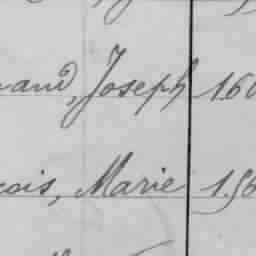 and, Joseph 160
cois, Marie 156